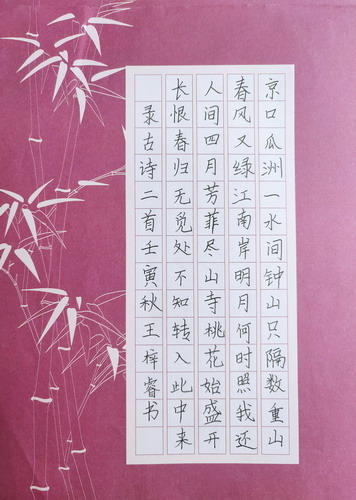 京口瓜洲一水间钟山只隔数重山
春风又绿江南岸明月何时照我还
人间四月芳菲尽山寺桃花始盛开
长恨春归无觅处不知转入此中来
录古诗二首壬寅秋王梓睿书